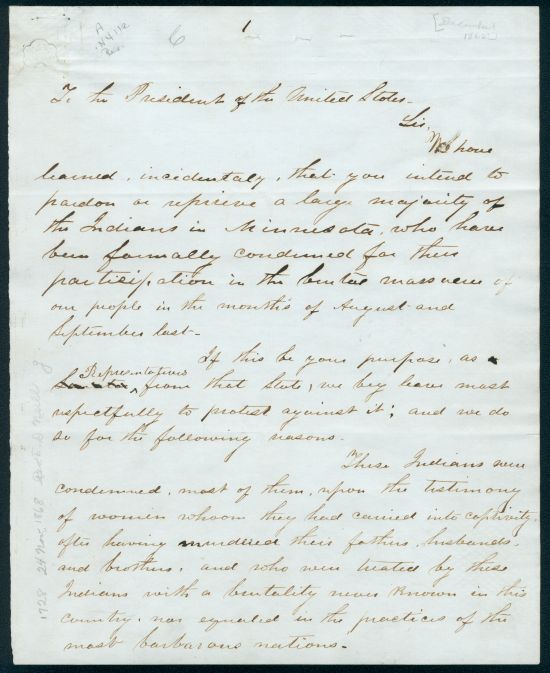 1
A
.N411z
6
To the President of the United States.
Sir,
We have
learned, incidentaly, that you intend to
pardon or reprieve a large majority of
the Indians in Minnesota, who have
been formally condemned for their
participation in the brutal massacre of
our people in the months of August and
September last.
If this be your purpose, as
Representatives
from that State, we beg leave most
respectfully to protest against it; and we do
so for the following reasons.
These Indians were
condemned, most of them, upon the testimony
of women whom they had carried into captivity,
after having murdered their fathers, husbands
and brothers, and who were treated by these
Indians with a brutality never known in this
country, nor equaled in the practices of the
most barbarous nations.
1728 24 Nov. 1868